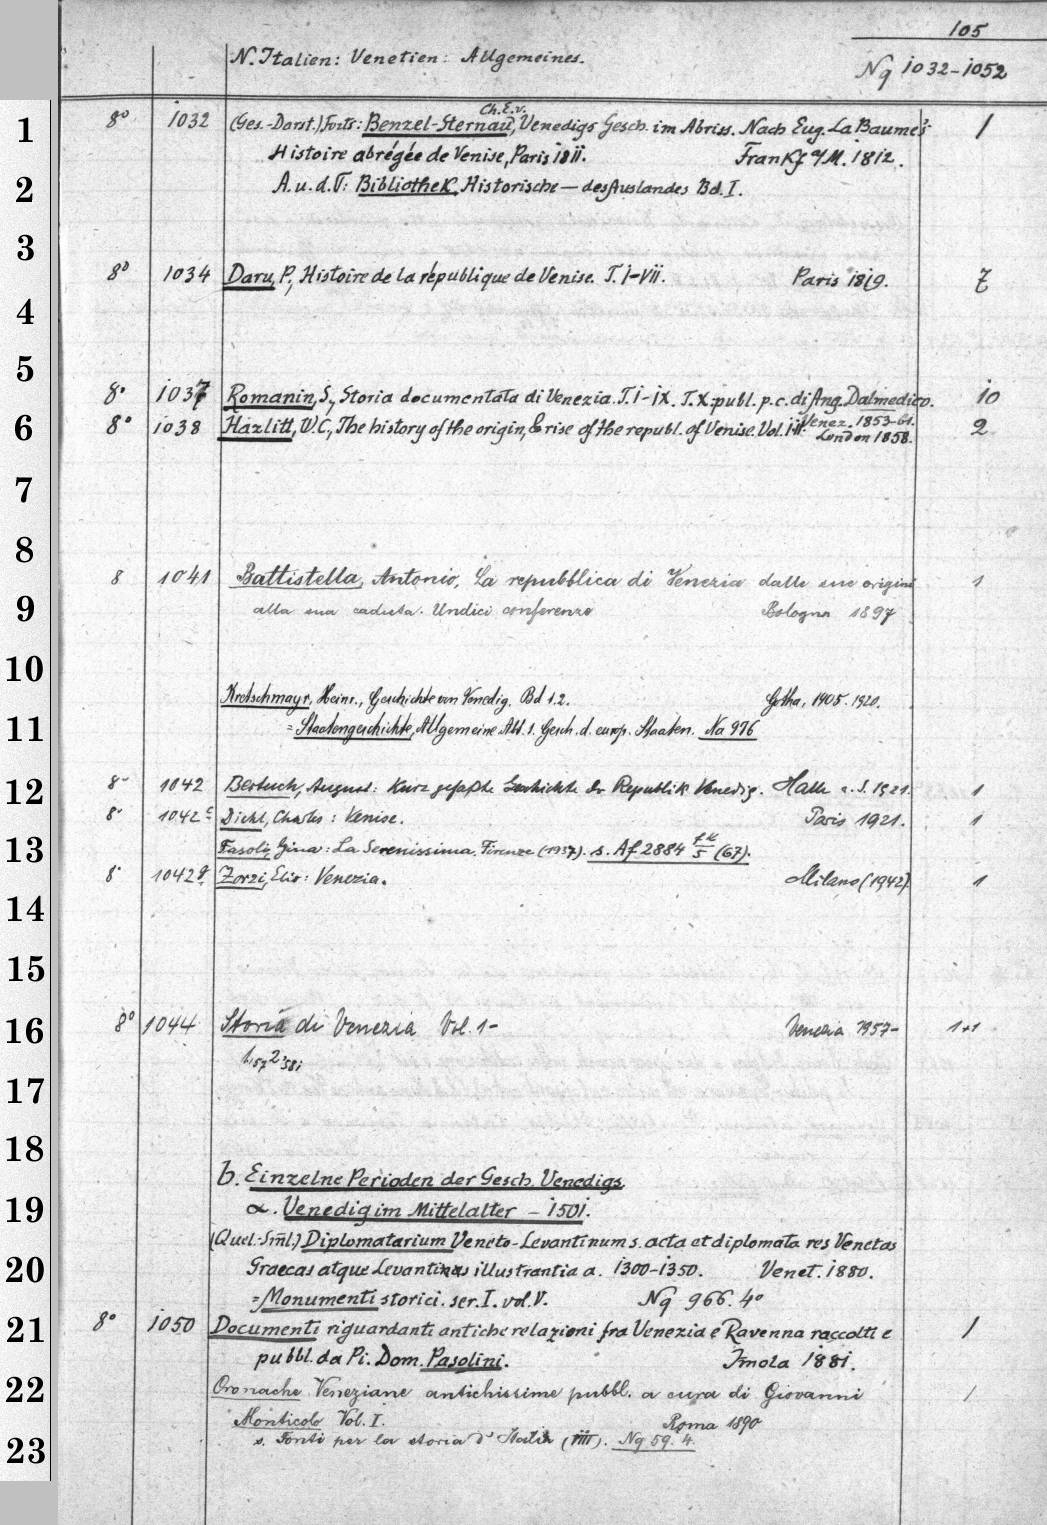 105
N. Italien: Venetien: Allgemeines.
Nq 1032-1052
Ch. E. v.
1 8° 1032 (Ges.-Darst.) Forts: Benzel-Sternau, Venedigs Gesch. im Abriss. Nach Eug. La Baume's 1
Histoire abrégée de Venise, Paris 1811. Frankf a/M. 1812.
2 A. u. d. T: Bibliothek, Historische — des Auslandes Bd. I.
3
8° 1034 Daru, P., Histoire de la république de Venise. T. I-VII. Paris 1819. 7
4
5
8° 1037 Romanin, S., Storia documentata di Venezia. T. I-IX. T. X publ. p. c. di Ang. Dalmedico. 10
Venez. 1853-61.
6 8° 1038 Hazlitt, W. C., The history of the origin, & rise of the republ. of Venise. Vol. I-II. London 1858. 2
7
8
8 1041 Battistella, Antonio, La repubblica di Venezia dalle sue origini 1
9 alla sua caduta. Undici conferenze Bologna 1897
10
Kretschmayr, Heinr., Geschichte von Venedig. Bd 1.2. Gotha, 1905. 1920.
11 = Staatengeschichte, Allgemeine Abt. 1. Gesch. d. europ. Staaten. Na 976
12 8° 1042 Bertuch, August: Kurz gefaßte Geschichte der Republik Venedig. Halle a. S. 1921. 1
8° 1042c Diehl, Charles: Venise. Paris 1921. 1
13 Fasoli, Gina: La Serenissima. Firenze (1937). s. Af 2884 fk/5 (67).
8° 1042g Zorzi, Elio: Venezia. Milano (1942) 1
14
15
16 8° 1044 Storia di Venezia Vol. 1- Venezia 1957- 1+1
1,57 2,58;
17
18
b. Einzelne Perioden der Gesch. Venedigs.
19 α. Venedig im Mittelalter – 1501.
(Quel.-Sml.) Diplomatarium Veneto-Levantinum s. acta et diplomata res Venetas
20 Graecas atque Levantinas illustrantia a. 1300-1350. Venet. 1880.
= Monumenti storici. ser. I. vol. V. Nq 966. 4°
21 8° 1050 Documenti riguardanti antiche relazioni fra Venezia e Ravenna raccolti e 1
pubbl. da Pi. Dom. Pasolini. Imola 1881.
22 Cronache Veneziane antichissime pubbl. a cura di Giovanni 1
Monticolo Vol. I. Roma 1890
23 s. Fonti per la storia d'Italia (VIII). Nq 59. 4.